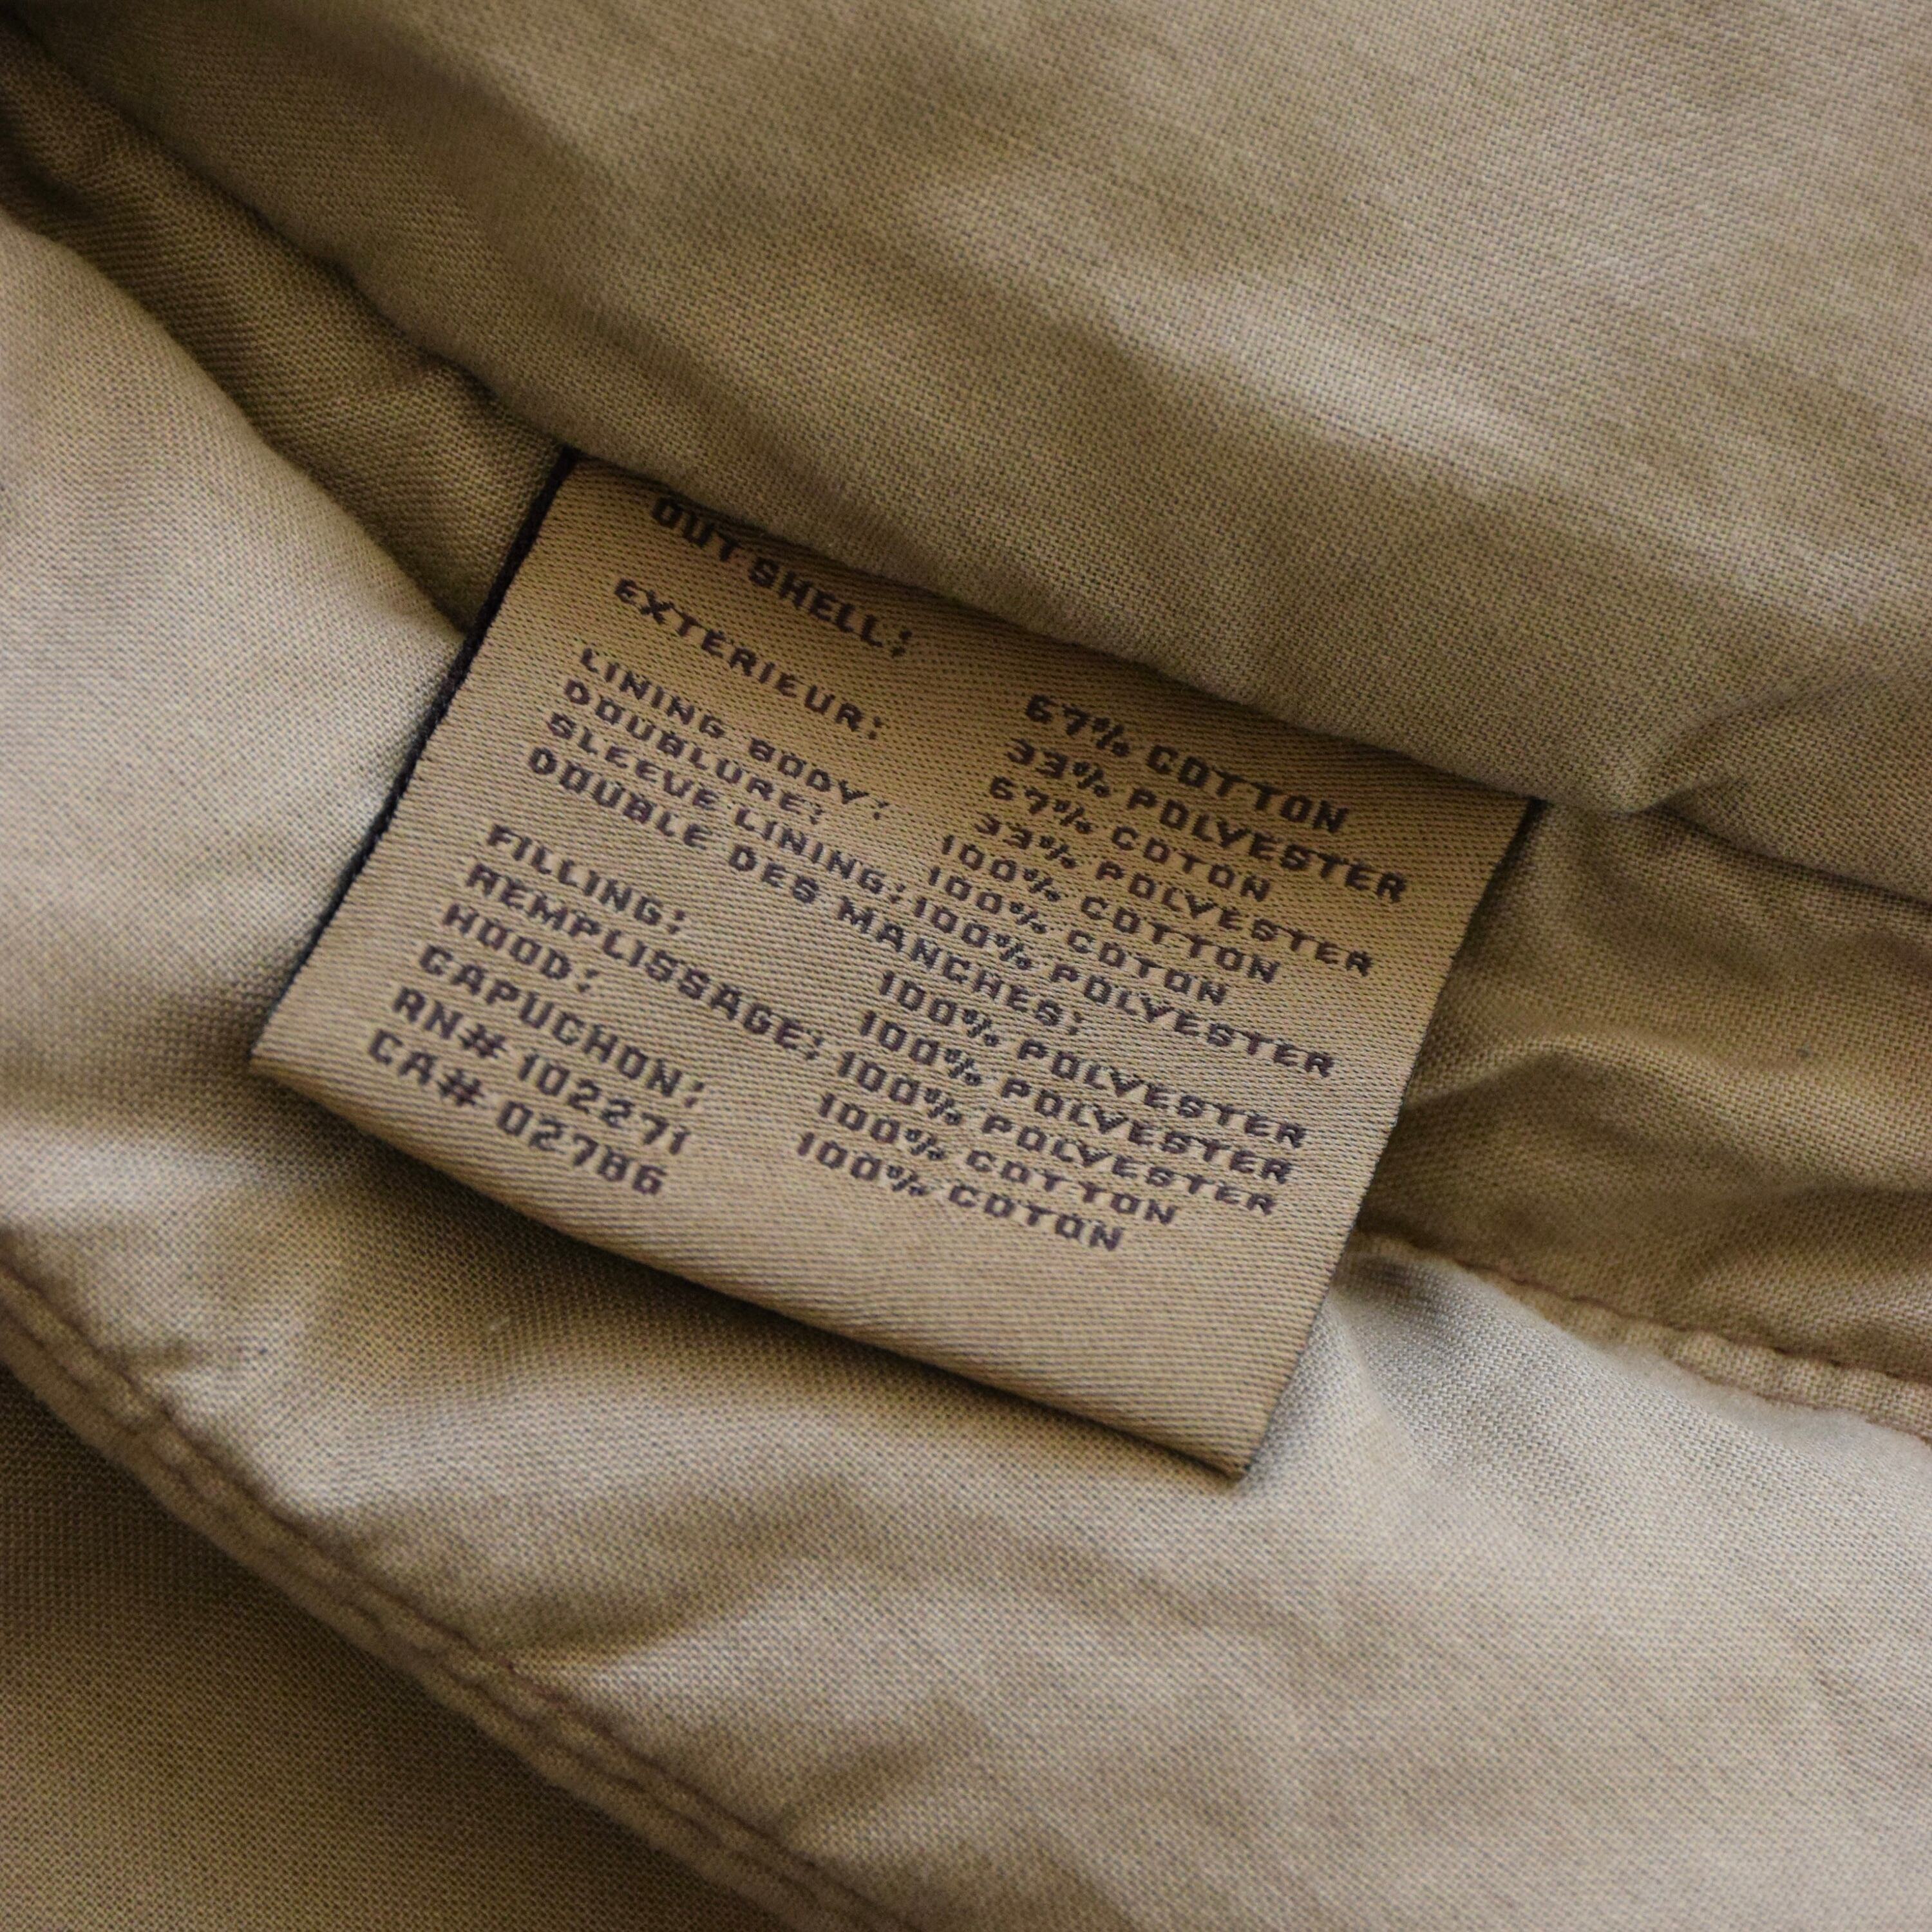 OUTSHELL: 67% COTTON
33% POLYESTER
EXTERIEUR: 67% COTON
33% POLYESTER
LINING BODY: 100% COTTON
DOUBLURE: 100% COTON
SLEEVE LINING: 100% POLYESTER
DOUBLE DES MANCHES:
100% POLYESTER
FILLING: 100% POLYESTER
REMPLISSAGE: 100% POLYESTER
HOOD: 100% COTTON
CAPUCHON: 100% COTON
RN# 102271
CA# 02786